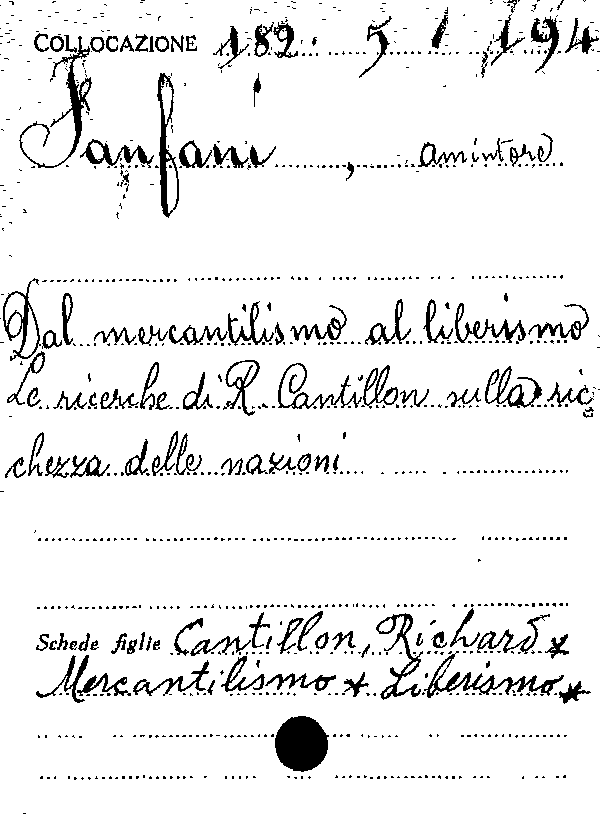 COLLOCAZIONE 182. 5 / 194
Fanfani, Amintore
Dal mercantilismo al liberismo
Le ricerche di R. Cantillon sulla ric
chezza delle nazioni
Schede figlie Cantillon, Richard *
Mercantilismo * Liberismo *